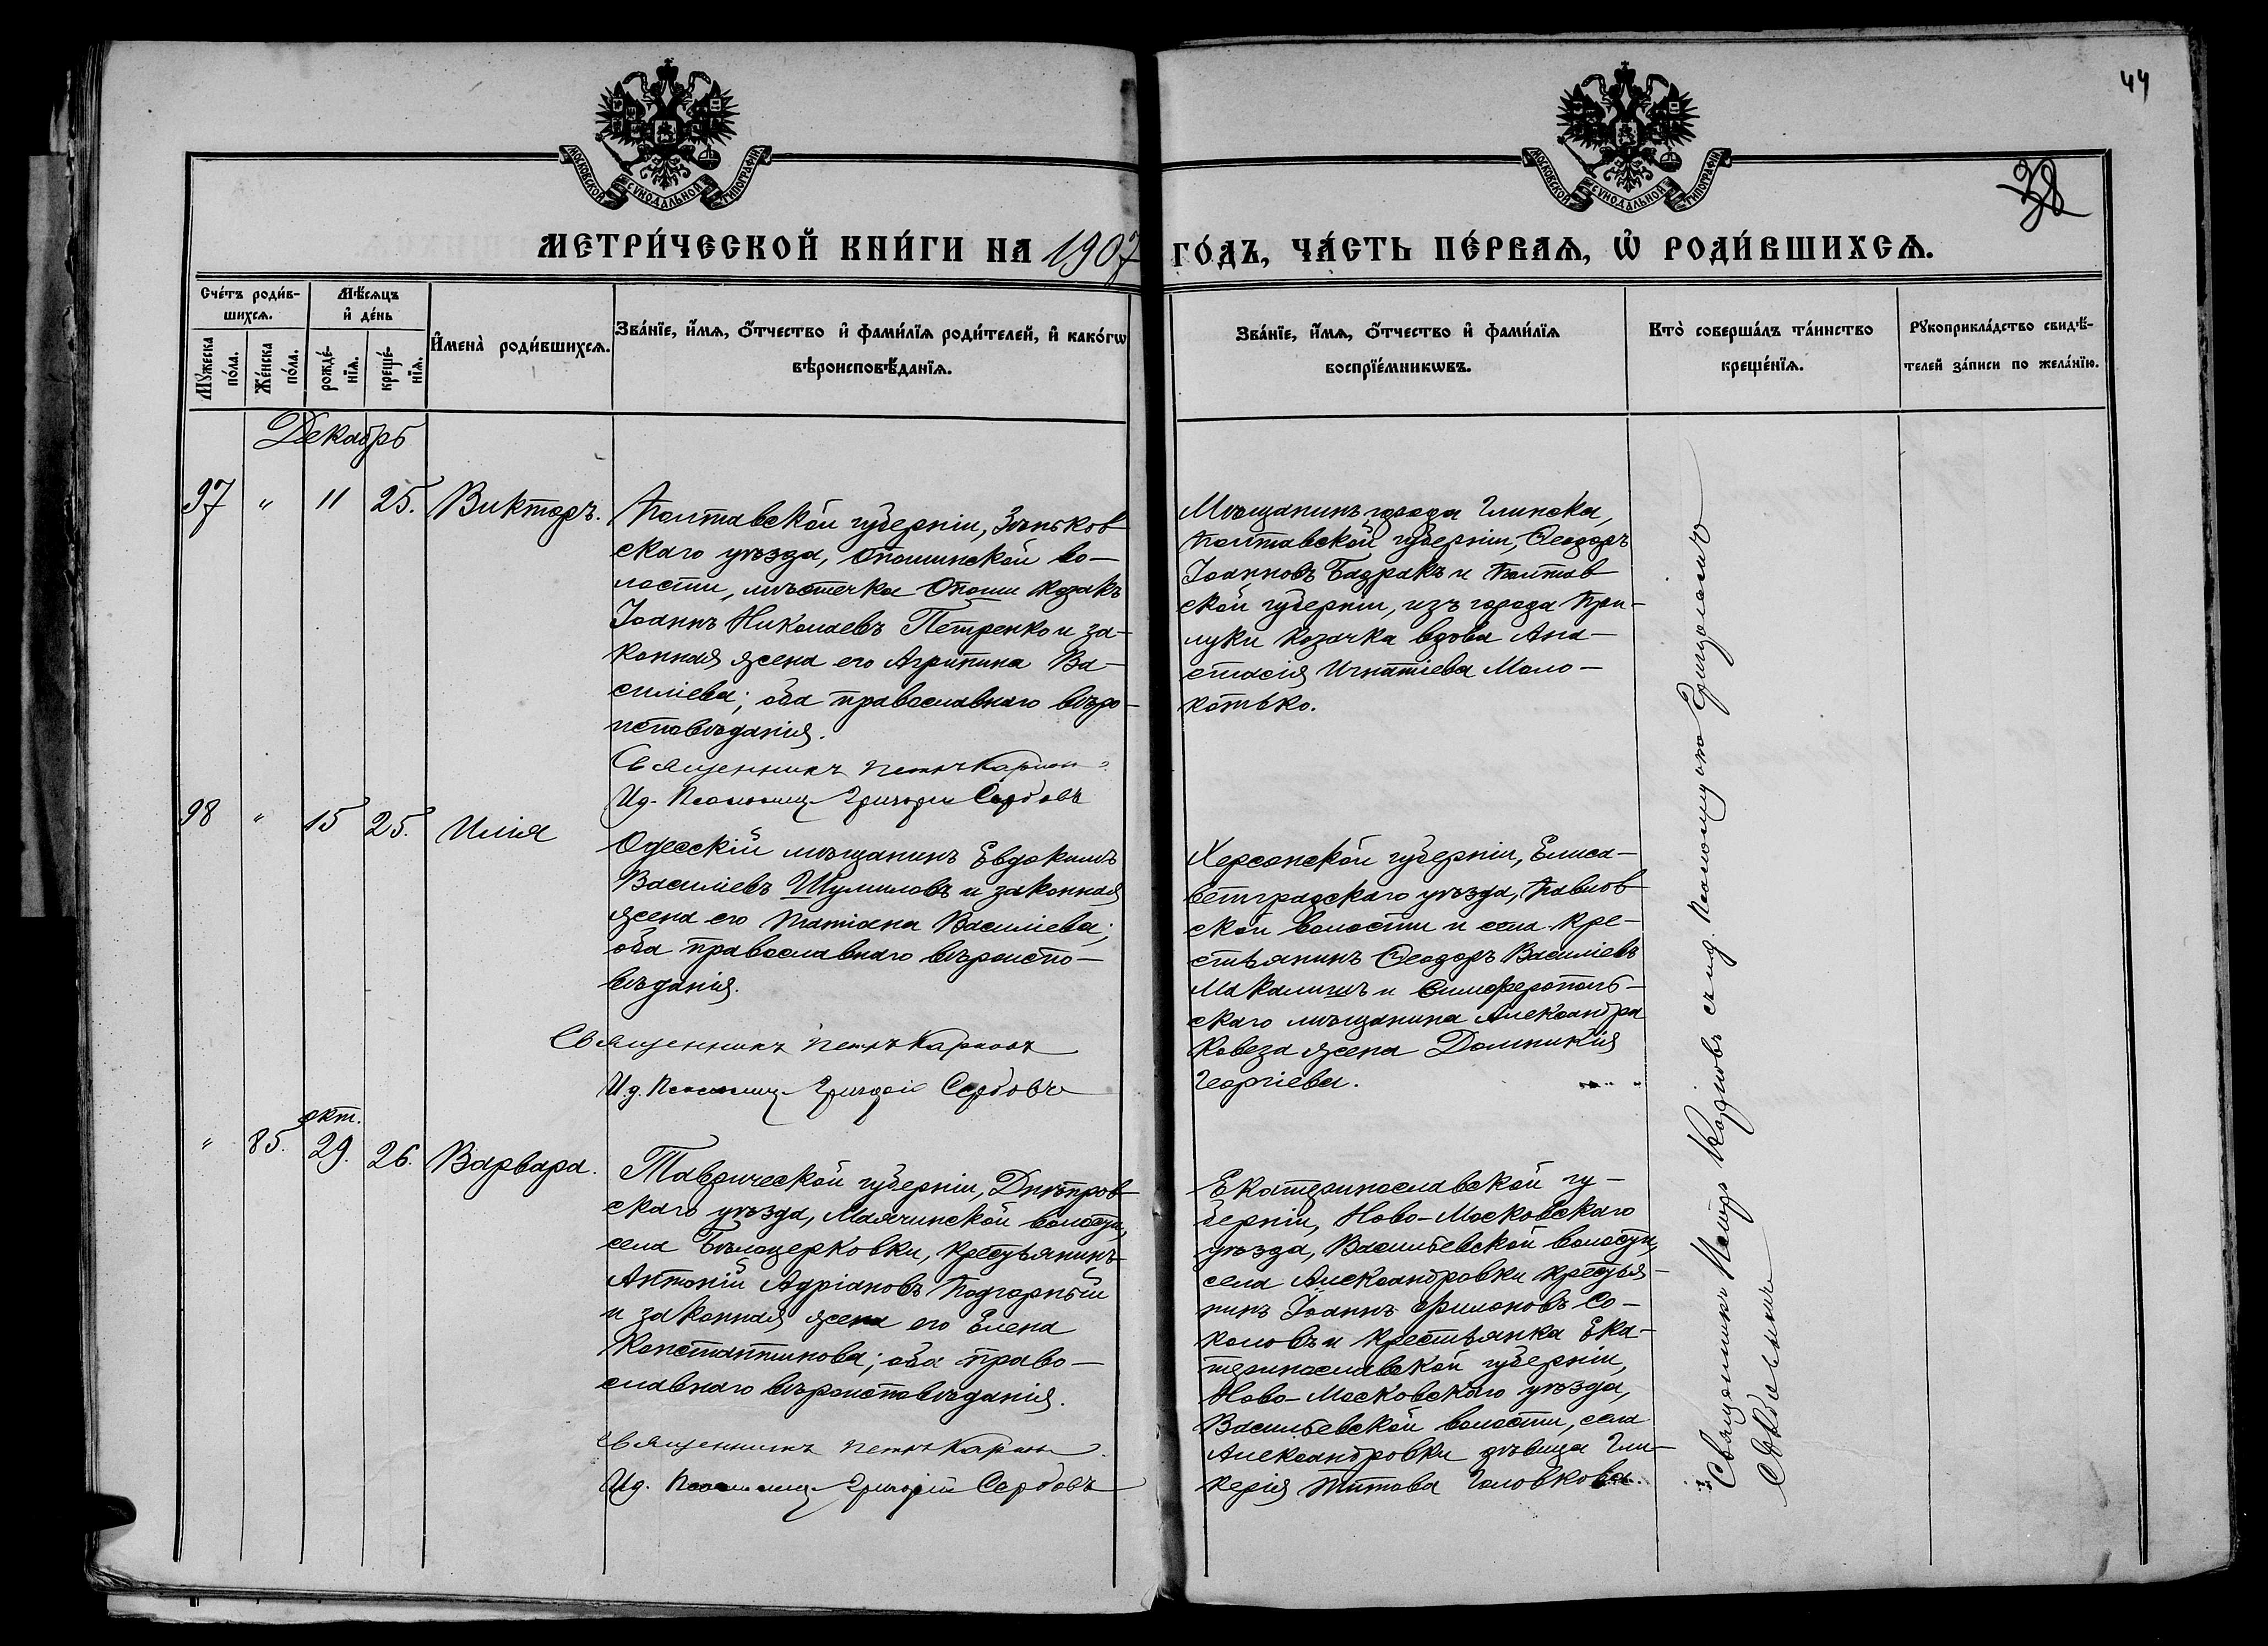 44
38
МОСКОВСКОЙ СѴНОДАЛЬНОЙ ТИПОГРАФІИ
МОСКОВСКОЙ СѴНОДАЛЬНОЙ ТИПОГРАФІИ
МЕТРИ́ЧЕСКОЙ КНИ́ГИ НА 1907 ГО́ДЪ, ЧА́СТЬ ПЕ́РВАѦ, Ѡ҆ РОДИ́ВШИХСѦ.
Сче́тъ роди́в-
шихсѧ.
Мѣ́сѧцъ
и҆ де́нь
Мꙋ́жеска
по́ла.
Же́нска
по́ла.
рожде́-
нїѧ.
креще́-
нїѧ.
И҆мена̀ роди́вшихсѧ.
Зва́нїе, и҆́мѧ, ѻ҆́тчество и҆ фами́лїѧ роди́телей, и҆ како́гѡ
вѣроисповѣ́данїѧ.
Зва́нїе, и҆́мѧ, ѻ҆́тчество и҆ фами́лїѧ
воспрїе́мникѡвъ.
Кто̀ соверша́лъ та́инство
креще́нїѧ.
Рꙋкоприкла́дство свидѣ́-
телей за́писи по жела́нїю.
Декабрь
97 " 11 25. Викторъ.
Полтавской губерніи, Зѣньков
скаго уѣзда, Опошнской во-
лости, мѣстечка Опошни козакъ
Іоаннъ Николаевъ Петренко и за-
конная жена его Агрипина Ва-
силіева; оба православнаго вѣро-
исповѣданія.
Священникъ Петръ Карпов
И.д. Псаломщ. Григорій Сербовъ
Мѣщанинъ города Глинска,
Полтавской губерніи, Ѳеодоръ
Іоанновъ Бадракъ и Полтав
ской губерніи, изъ города При-
луки козачка вдова Ана-
стасія Игнатіева Моло-
котько.
98 " 15 25. Илія
Одесскій мѣщанинъ Евдокимъ
Василіевъ Шумиловъ и законная
жена его Татіана Василіева;
оба православнаго вѣроиспо-
вѣданія.
Священникъ Петръ Карповъ
И.д. Псаломщ. Григорій Сербовъ
Херсонской губерніи, Елиса-
ветградскаго уѣзда, Павлов
ской волости и села кре-
стьянинъ Ѳеодоръ Василіевъ
и Симферополь-
скаго мѣщанина Александра
Ковеза жена Домникія
Георгіева.
окт.
" 85. 29. 26. Варвара.
Таврической губерніи, Днѣпров-
скаго уѣзда, Маячинской волости,
села Бѣлоцерковки, крестьянинъ
Антоній Адріановъ Подгорный
и законная жена его Елена
Константинова; оба право-
славнаго вѣроисповѣданія.
Священникъ Петръ Карпов
И.д. Псаломщ. Григорій Сербовъ
Екатеринославской гу-
берніи, Ново-Московскаго
уѣзда, Васильевской волости,
села Александровки крестья-
нинъ Іоаннъ Филоновъ Со-
коловъ и крестьянка Ека-
теринославской губерніи,
Ново-Московскаго уѣзда,
Васильевской волости, села
Александровки дѣвица Гли-
керія Титова Головкова.
Священникъ Петръ съ и.д. псаломщ.